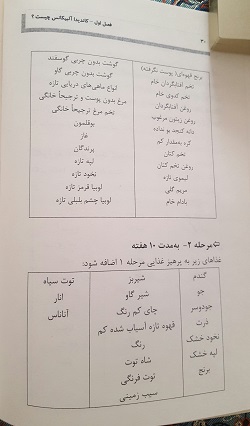 ۳۰
فصل اول - کاندیدا آلبیکانس چیست ؟
برنج قهوه‌ای( پوست نگرفته)
تخم آفتابگردان خام
تخم کدوی خام
روغن آفتابگردان
روغن زیتون مرغوب
دانه کنجد بو نداده
کره به‌مقدار کم
تخم کتان
روغن تخم کتان
لیموی تازه
مریم گلی
بادام خام
گوشت بدون چربی گوسفند
گوشت بدون چربی گاو
انواع ماهی‌های دریایی تازه
مرغ بدون پوست و ترجیحاً خانگی
تخم مرغ ترجیحاً خانگی
بوقلمون
غاز
پرندگان
لپه تازه
نخود تازه
لوبیا قرمز تازه
لوبیا چشم بلبلی تازه
⇐ مرحله ۲- به‌مدت ۱۰ هفته
غذاهای زیر به پرهیز غذایی مرحله ۱ اضافه شود:
گندم
جو
جودوسر
ذرت
نخود خشک
لپه خشک
برنج
شیربز
شیر گاو
چای کم رنگ
قهوه تازه آسیاب شده کم
رنگ
شاه توت
توت فرنگی
سیب زمینی
توت سیاه
انار
آناناس